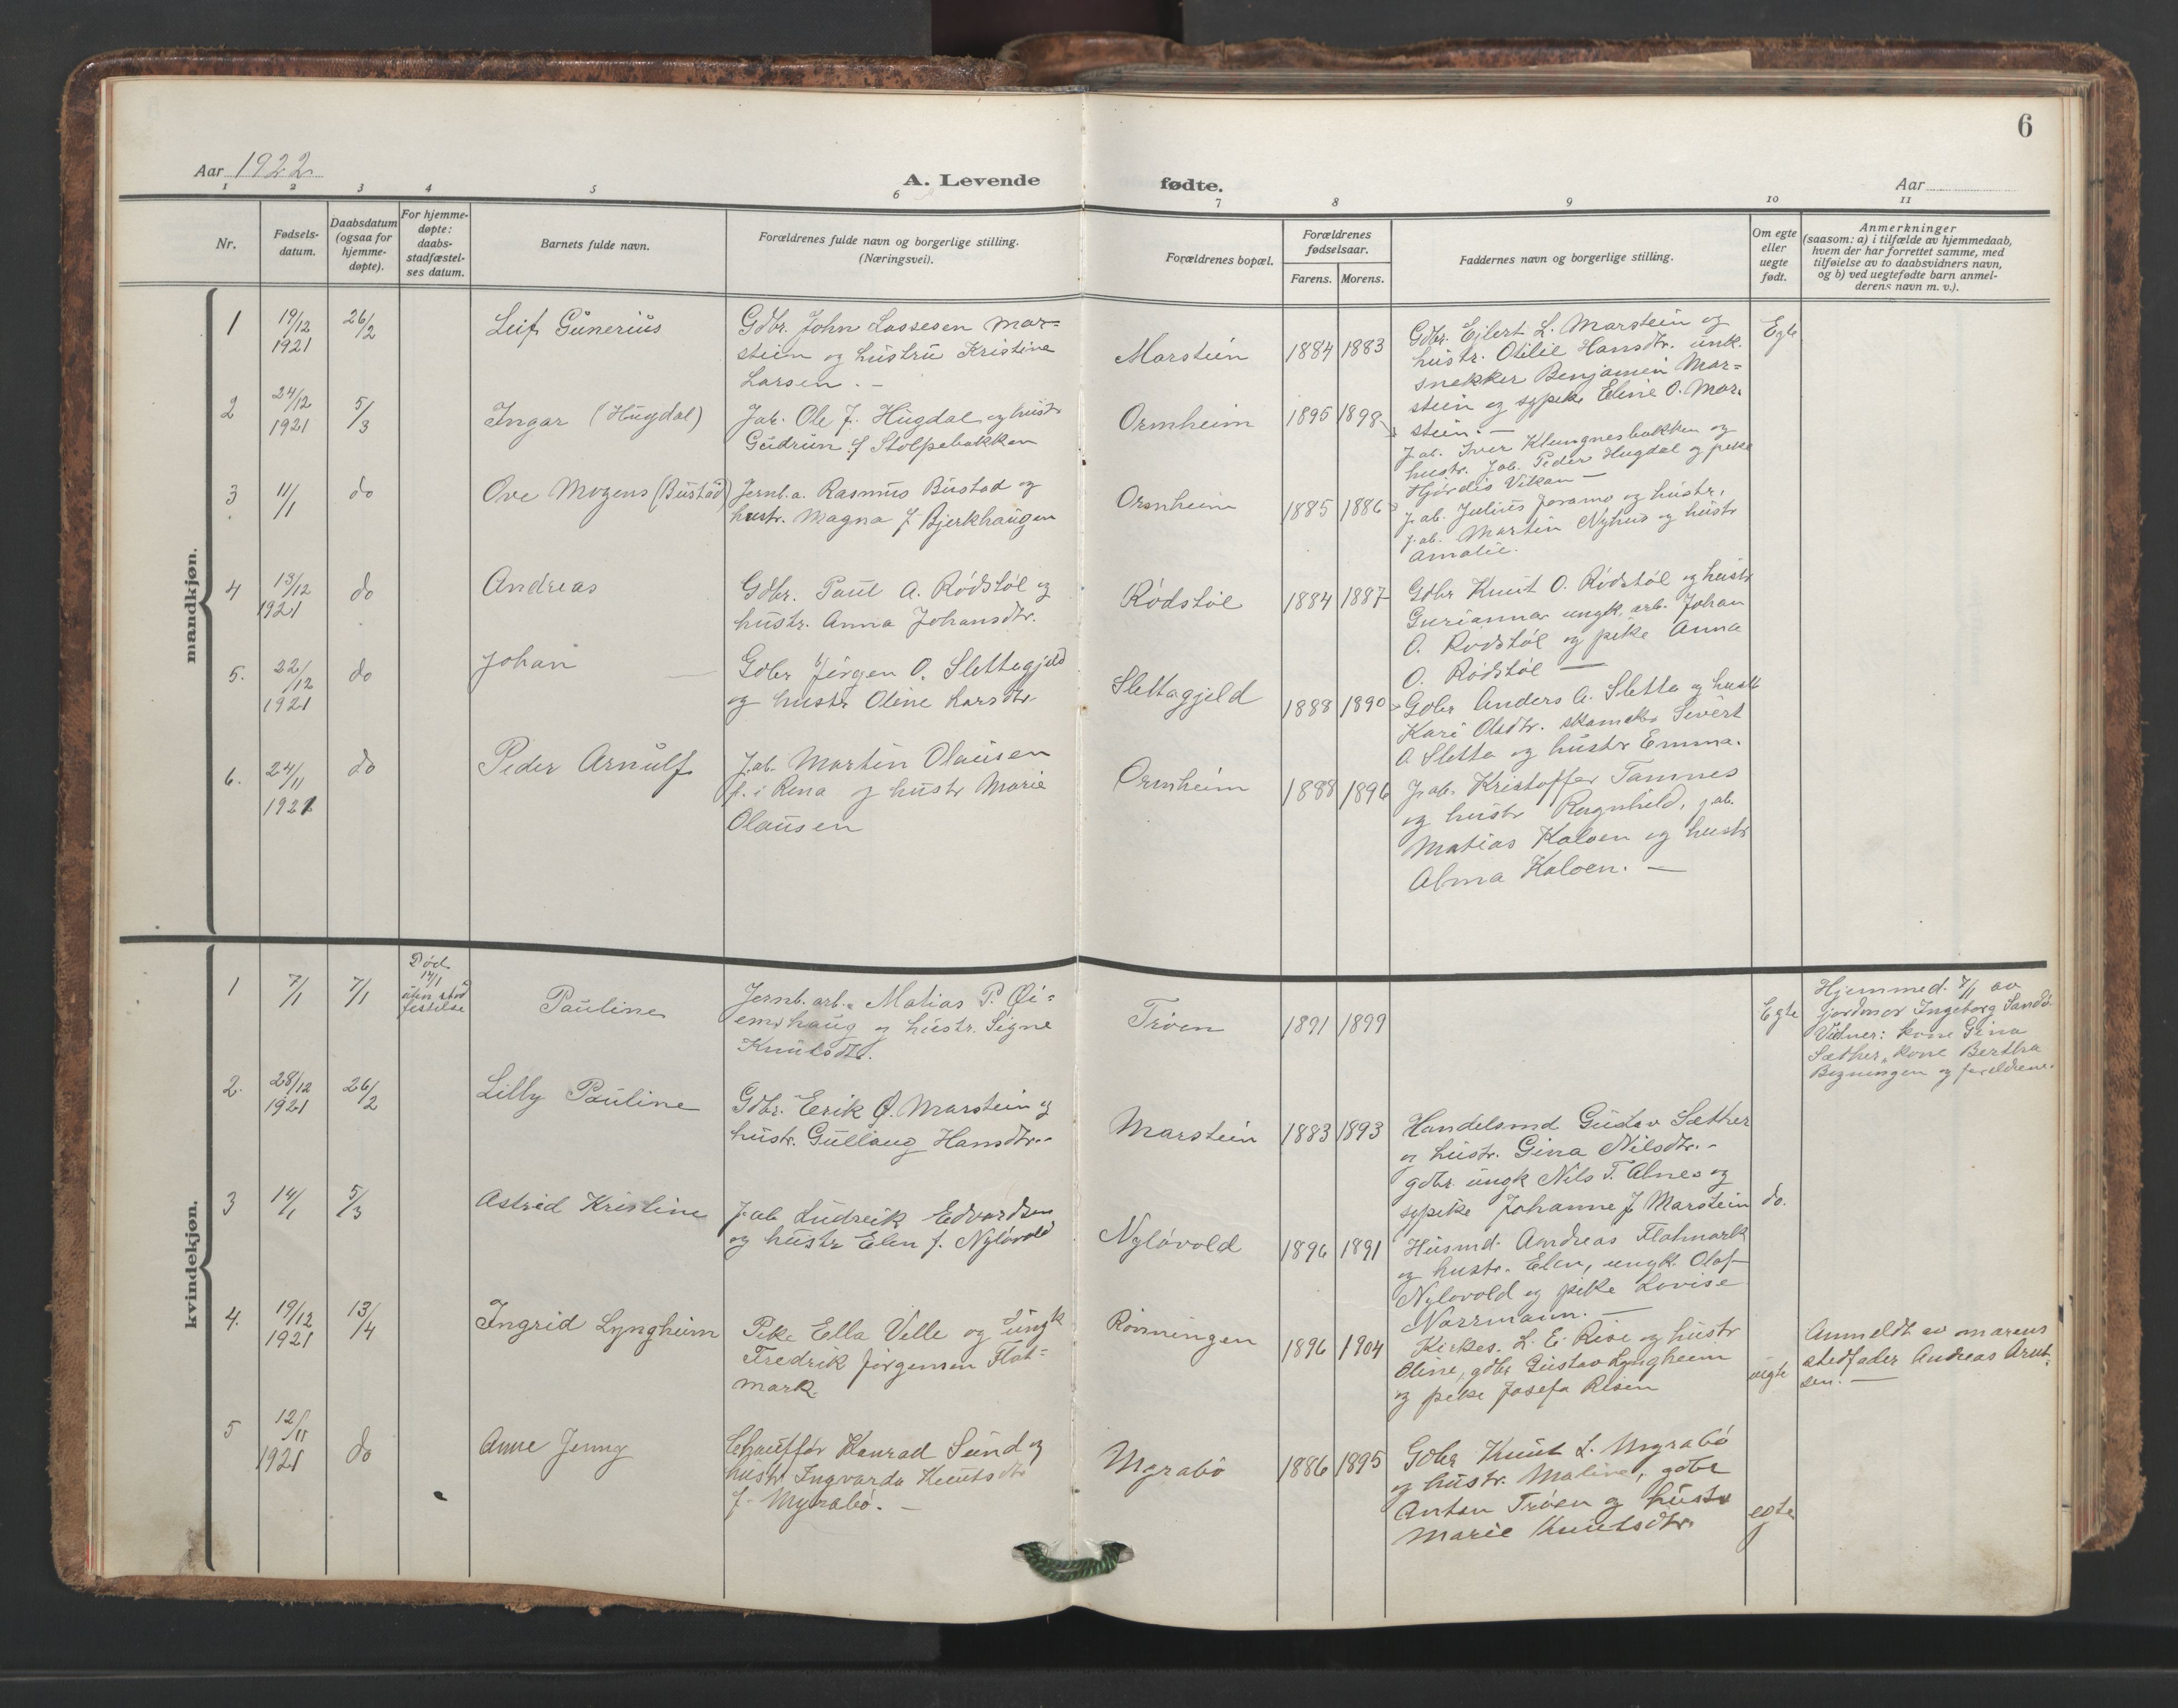 6
Aar 1922
A. Levende
fødte.
Aar
1 2 3 4 5 6 7 8 9 10 11
Nr.
Fødsels-
datum.
Daabsdatum
(ogsaa for
hjemme-
døpte).
For hjemme-
døpte:
daabs-
stadfæstel-
ses datum.
Barnets fulde navn.
Forældrenes fulde navn og borgerlige stilling.
(Næringsvei).
Forældrenes bopæl.
Forældrenes
fødselsaar.
Farens. Morens.
Faddernes navn og borgerlige stilling.
Om egte
eller
uegte
født.
Anmerkninger
(saasom: a) i tilfælde av hjemmedaab,
hvem der har forrettet samme, med
tilføielse av to daabsvidners navn,
og b) ved uegtefødte barn anmel-
derens navn m. v.).
mandkjøn.
1
19/12
1921
26/2
Leif Gunerius
Gdbr. John Lassesen Mar=
stein og hustru Kristine
Larsen. -
Marstein
1884 1883
Gdbr. Eilert L. Marstein og
hustr. Otilie Hansdtr. unk.
snekker Benjamin Mar=
stein og sypike Eline O. Mar.
stein. -
Egte
2
24/12
1921
5/3
Ingar (Hugdal)
Jab. Ole J. Hugdal og hustr
Gudrun f Stolpebakken
Ormheim
1895 1898
J.ab. Iver Klungnesbakken og
hustr. Jab. Peder Hugdal og pike
Hjørdis Vikan -
3
11/1
do
Ove Mogens (Bustad)
Jernb.a. Rasmus Bustad og
hustr. Magna f Bjerkhaugen
Ormheim
1885 1886
J.ab. Julius Joramo og hustr,
J.ab. Martin Nyhus og hustr
Amalie.
4
13/12
1921
do
Andreas
Gdbr. Paul A. Rødstøl og
hustr. Anna Johansdtr.
Rødstøl
1884 1887
Gdbr Knut O. Rødstøl og hustr
Gurianna ungk. arb. Johan
O. Rødstøl og pike Anna
O. Rødstøl -
5.
22/12
1921
do
Johan
Gdbr Jørgen O. Slettagjeld
og hustr Oline Larsdtr
Slettagjeld
1888 1890
Gdbr Anders A. Sletta og hustr
Kari Olsdtr. skomaker Sivert
O Sletta og hustr Emma.
6.
24/11
1921
do
Peder Arnulf
J.ab. Martin Olausen
f. i Rena og hustr Marie
Olausen
Ormheim
1888 1896
J.ab. Kristoffer Tamnes
og hustr Ragnhild, j.ab.
Matias Kaloen og hustr
Alma Kaloen. -
kvindekjøn.
1
7/1
7/1
Død
14/1
uten stad
festelse
Pauline
Jernb. arb. Matias P. Øi=
emshaug og hustr. Signe
Knutsdtr.
Trøen
1891 1899
Egte
Hjemmed. 7/1 av
jordmor Ingeborg Sandø.
Vidner: kone Gina
Sæther, kone Bertha
og foreldrene.
2.
28/12
1921
26/2
Lilly Pauline
Gdbr. Erik O. Marstein og
hustr. Gullaug Hansdtr.
Marstein
1883 1893
Handelsmd Gustav Sæther
og hustr. Gina Nilsdtr. -
gdbr ungk Nils T. Alnes og
sypike Johanne J Marstein
do.
3
14/1
5/3
Astrid Kristine
J.ab Ludveik Edvardsen
og hustr Elen f. Nyløvold
Nyløvold
1896 1891
Husmd. Andreas Flatmark
og hustr. Elen, ungk. Olaf
Nyløvold og pike Lovise
Norrmann. -
4.
19/12
1921
13/4
Ingrid Lyngheim
Pike Ella Velle og ungk
Fredrik Jørgensen Flat=
mark.
Rønningen
1896 1904
Kirkes. L. E. Rise og hustr
Oline, gdbr Gustav Lyngheim
og pike Josefa Risen
uegte
Anmeldt av morens
stedfader Andreas Arnt
sen. -
5
12/11
1921
do
Anne Jenny
Chauffør Konrad Sund og
hustr Ingvarda Knutsdtr
f. Myrabø. -
Myrabø
1886 1895
Gdbr Knut L. Myrabø
og hustr. Maline, gdbr
Anton Trøen og hustr
Marie Knutsdtr.
egte